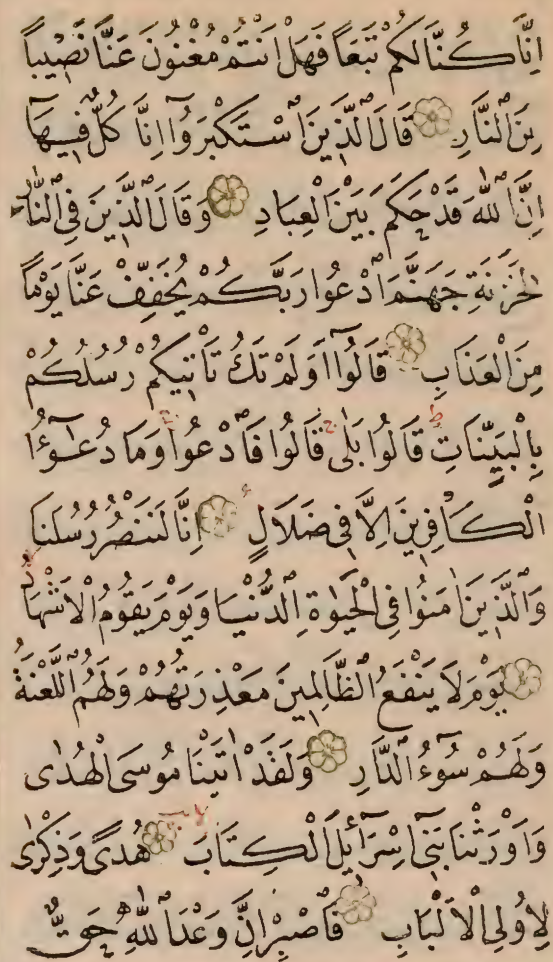 اِنَّا كُنَّا لَكُمْ تَبَعًا فَهَلْ اَنْتُمْ مُغْنُونَ عَنَّا نَصٖيبًا
مِنَ النَّارِ قَالَ الَّذٖينَ اسْتَكْبَرُٓوا اِنَّا كُلٌّ فٖيهَٓا
اِنَّ اللّٰهَ قَدْ حَكَمَ بَيْنَ الْعِبَادِ وَقَالَ الَّذٖينَ فِى النَّارِ
لِخَزَنَةِ جَهَنَّمَ ادْعُوا رَبَّكُمْ يُخَفِّفْ عَنَّا يَوْمًا
مِنَ الْعَذَابِ قَالُٓوا اَوَلَمْ تَكُ تَاْتٖيكُمْ رُسُلُكُمْ
بِالْبَيِّنَاتِ ط قَالُوا بَلٰى ج قَالُوا فَادْعُوا ج وَمَا دُعٰٓؤُا
الْكَافِرٖينَ اِلَّا فٖى ضَلَالٍ ع اِنَّا لَنَنْصُرُ رُسُلَنَا
وَالَّذٖينَ اٰمَنُوا فِى الْحَيٰوةِ الدُّنْيَا وَيَوْمَ يَقُومُ الْاَشْهَادُ
يَوْمَ لَا يَنْفَعُ الظَّالِمٖينَ مَعْذِرَتُهُمْ وَلَهُمُ اللَّعْنَةُ
وَلَهُمْ سُٓوءُ الدَّارِ وَلَقَدْ اٰتَيْنَا مُوسَى الْهُدٰى
وَاَوْرَثْنَا بَنٖٓى اِسْرَٓائٖلَ الْكِتَابَ لا هُدًى وَذِكْرٰى
لِاُولِى الْاَلْبَابِ فَاصْبِرْ اِنَّ وَعْدَ اللّٰهِ حَقٌّ